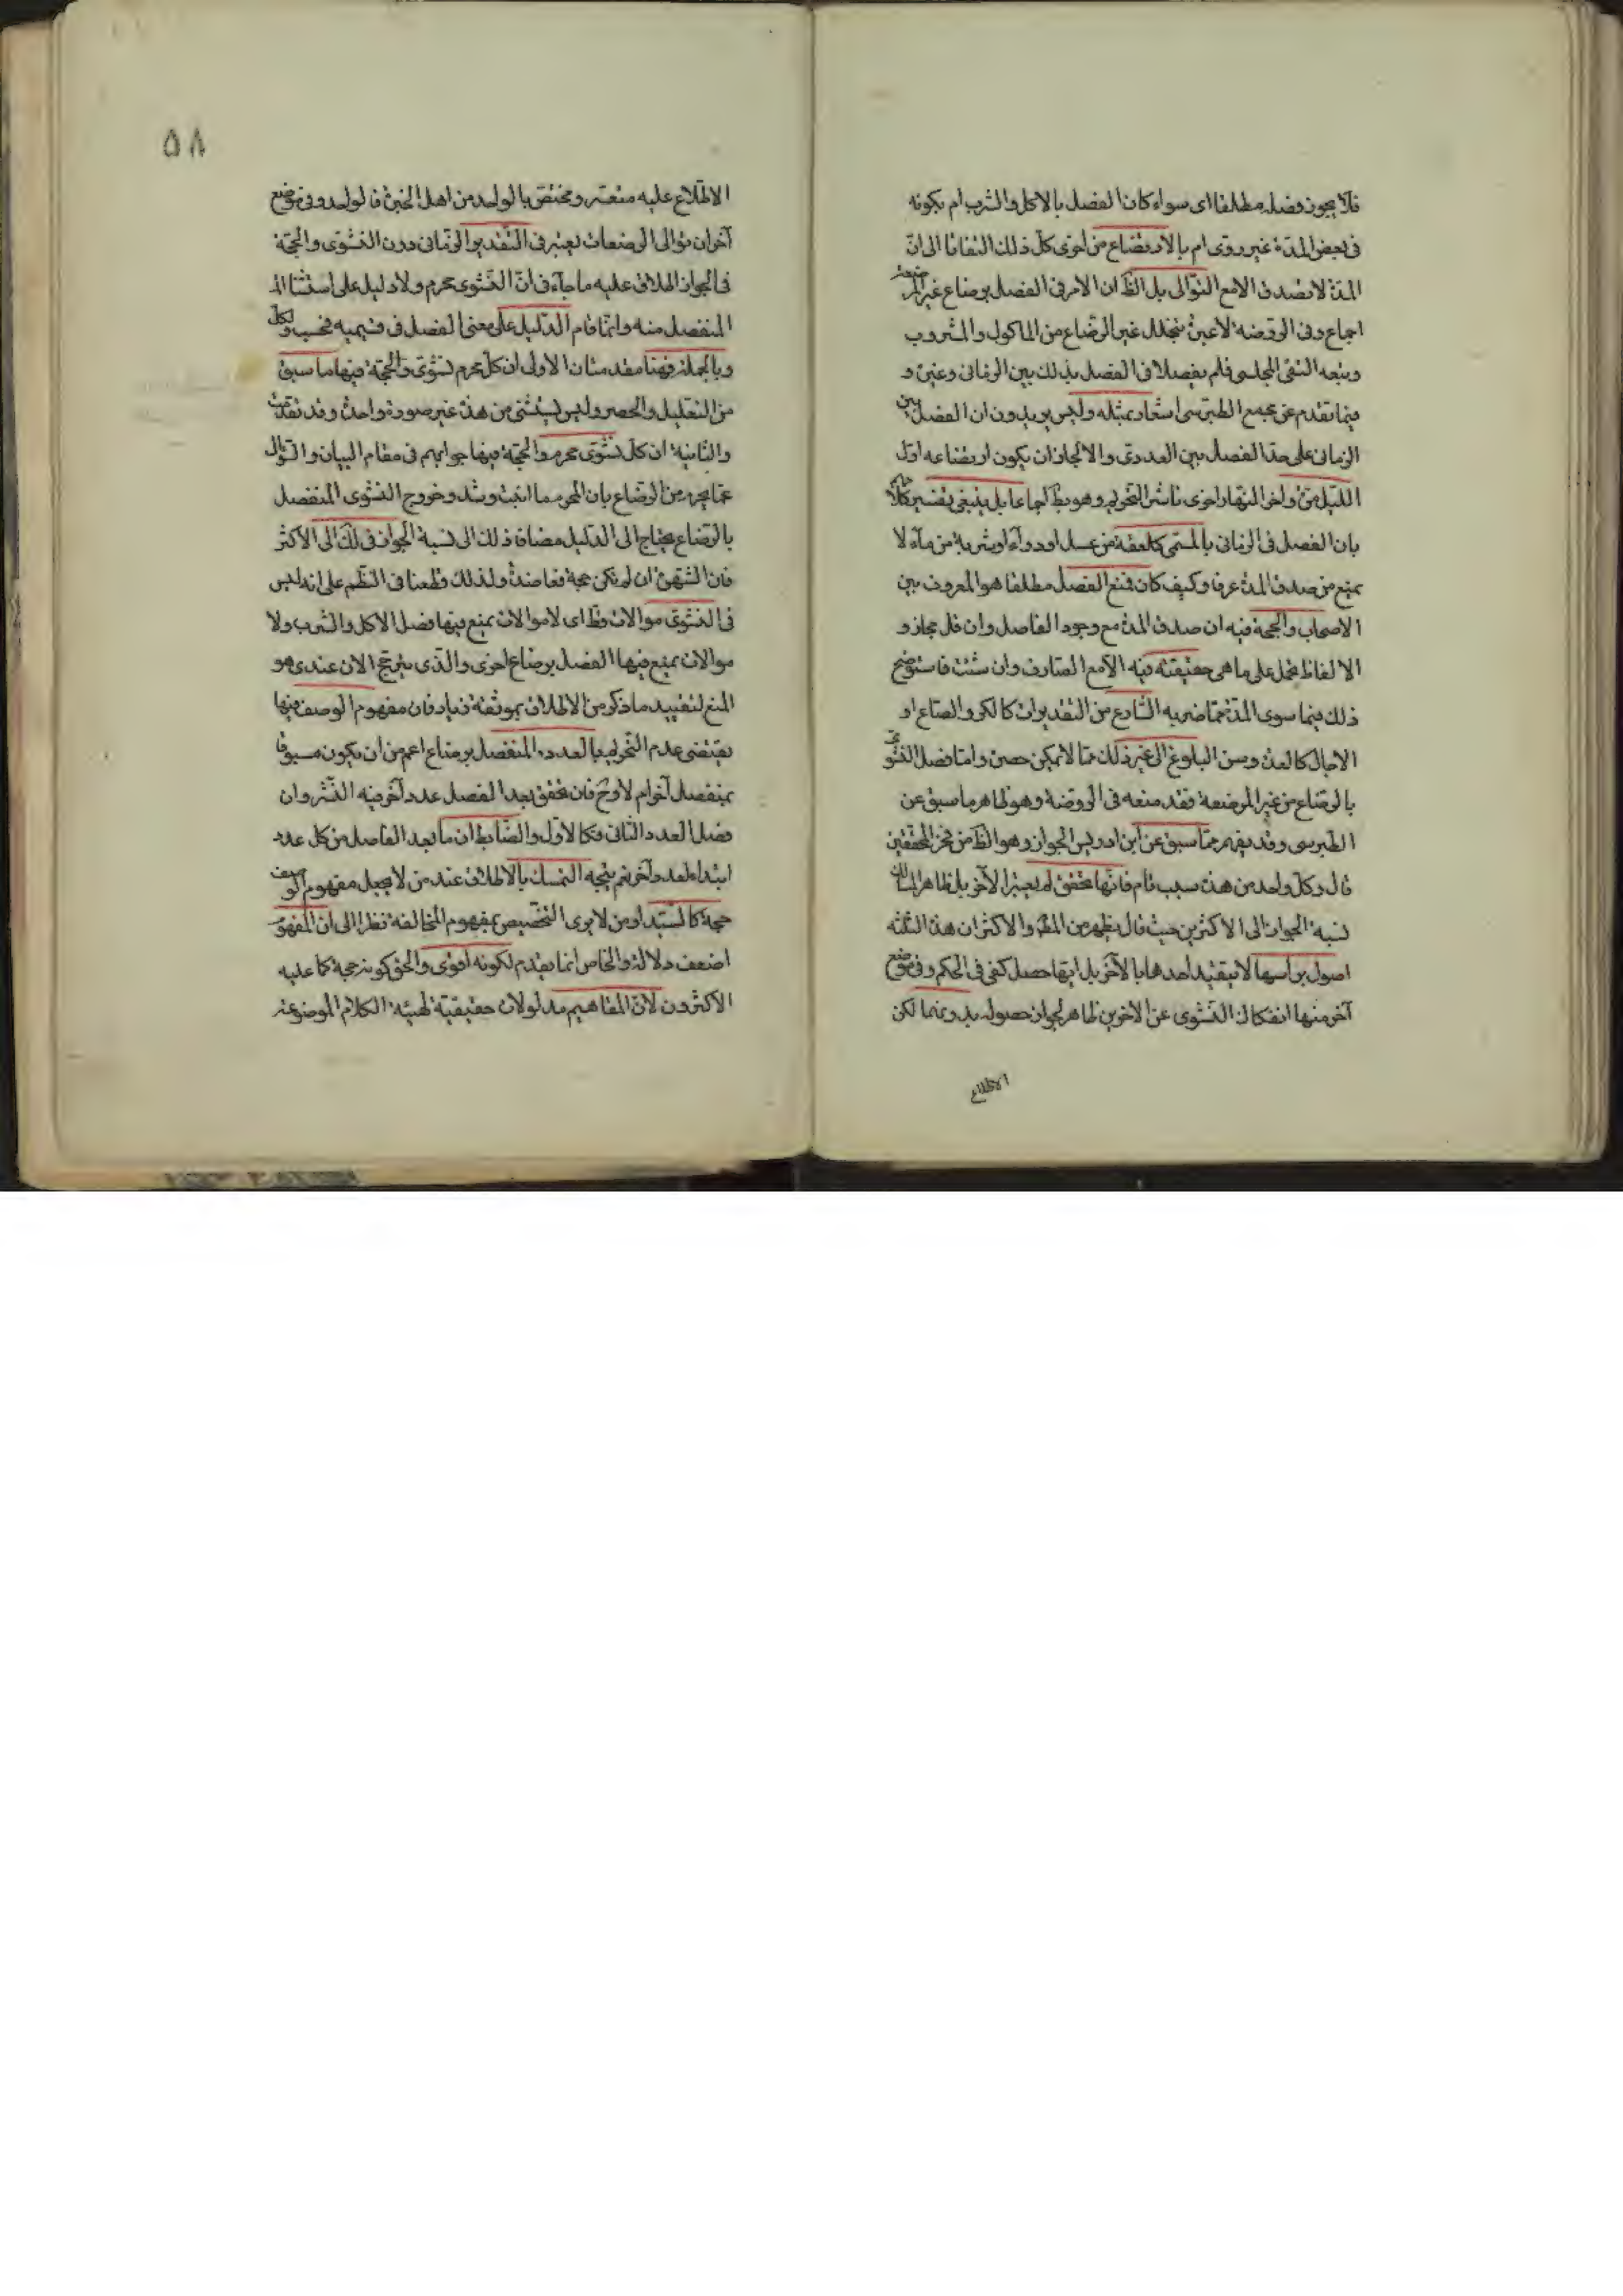 فلا يجوز فصله مطلقا اى سواء كان الفصل بالاكل والشرب ام بكونه
فى بعض المدة غير روى ام بالارتضاع من اخرى كل ذلك التفاتا الى ان
المدة لا تصدق الا مع التوالى بل الظ ان الامر فى الفصل برضاع غير المرضعة
اجماع وفى الروضه لا عبرة بتخلل غير الرضاع من الماكول والمشروب
وتبعه التقى المجلسى فلم يفصلا فى الفصل بذلك بين الزمانى وغيره و
فيما تقدم عن مجمع الطبرسى اشعار بمثله وليس يريدون ان الفصل بين
الزمانى على حد الفصل بين العددى والا لجاز ان يكون ارتضاعه اول
الليل مرة واخر النهار اخرى ناشر التحريم وهو بط اجماعا بل ينبغى تفسير كلامهم
بان الفصل فى الزمانى بالمسمى كلعقة من عسل او دواء او شربة من ماء لا
يمنع من صدق المدة عرفا وكيف كان فمنع الفصل مطلقا هو المعروف بين
الاصحاب والحجة فيه ان صدق المدة مع وجود الفاصل وان قل مجاز و
الالفاظ تحمل على ما هى حقيقته فيه الا مع الصارف وان شئت فاستوضح
ذلك فيما سوى المدة مما ضربه الشارع من التقديرات كالكر والصاع او
الاجال كالعدة وسن البلوغ الى غير ذلك مما لا يمكن حصره واما فصل النشوى
بالرضاع من غير المرضعة فقد منعه فى الروضة وهو ظاهر ما سبق عن
الطبرسى وقد يفهم مما سبق عن ابن ادريس الجواز وهو الظ من فخر المحققين
قال وكل واحد من هذه سبب تام فانها تحقق لم يعتبر الاخر بل ظاهر المسالك
نسبة الجواز الى الاكثرين حيث قال يظهر من المص والاكثر ان هذه الثلثه
اصول براسها لا يتقيد احدها بالآخر بل ايها حصل كفى فى الحكم وفى موضع
آخر منها انفكاك النشوى عن الاخرين ظاهر لجواز حصوله بدونهما لكن
الاطلاع
٥٨
الاطلاع عليه متعسر ومختص بالواحد من اهل الخبرة فالواحد وفى موضع
آخر ان توالى الرضعات يعتبر فى التقدير الزمانى دون النشوى والحجة
فى الجواز اطلاق عليه ما جاء فى ان النشوى محرم ولا دليل على استثناء
المنفصل منه وانما قام الدليل على معنى الفصل فى قسيميه فحسب
وبالجملة فهنا مقدمتان الاولى ان كل محرم نشوى والحجة فيها ما سبق
من التعليل والحصر وليس يستثنى من هذه غير صورة واحدة وقد تقدمت
والثانية ان كل نشوى محرم والحجة فيها جوابهم فى مقام البيان والسؤال
عما يحرم من الرضاع بان المحرم ما انبت وشد وخروج النشوى المنفصل
بالرضاع يحتاج الى الدليل مضافة ذلك الى نسبة الجواز فى لك الى الاكثر
فان الشهرة ان لم تكن حجة فعاضدة ولذلك قطعنا فى النظم على انه ليس
فى النشوى موالات قط اى لا موالات يمنع فيها فصل الاكل والشرب ولا
موالات يمنع فيها الفصل برضاع اخرى والذى يترجح الان عندى هو
المنع لتقييد ما ذكر من الاطلاق بموثقة زياد فان مفهوم الوصف فيها
يقتضى عدم التحريم بالعدد المنفصل برضاع اعم من ان يكون مسبوقا
بمنفصل آخر ام لا وح فان تحقق بعد الفصل عدد آخر فيه النشر وان
فصل العدد الثانى فكالاول والضابط ان ما بعد الفاصل من كل عدد
ابتداء لعدد آخر نعم يتجه التمسك بالاطلاق عند من لا يجعل مفهوم الوصف
حجة كالسيد او من لا يرى التخصيص بمفهوم المخالفة نظرا الى ان المفهوم
اضعف دلالة والخاص انما يقدم لكونه اقوى والحق كونه حجة كما عليه
الاكثرون لان المفاهيم مدلولات حقيقية لهيئة الكلام الموضوعة